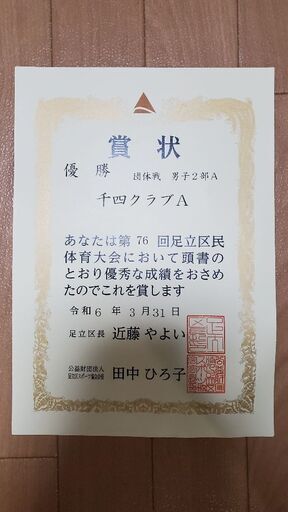 賞状
優勝 団体戦 男子2部A
千四クラブA
あなたは第76回足立区民
体育大会において頭書の
とおり優秀な成績をおさめ
たのでこれを賞します
令和6年3月31日
足立区長 近藤やよい
公益財団法人
田中ひろ子